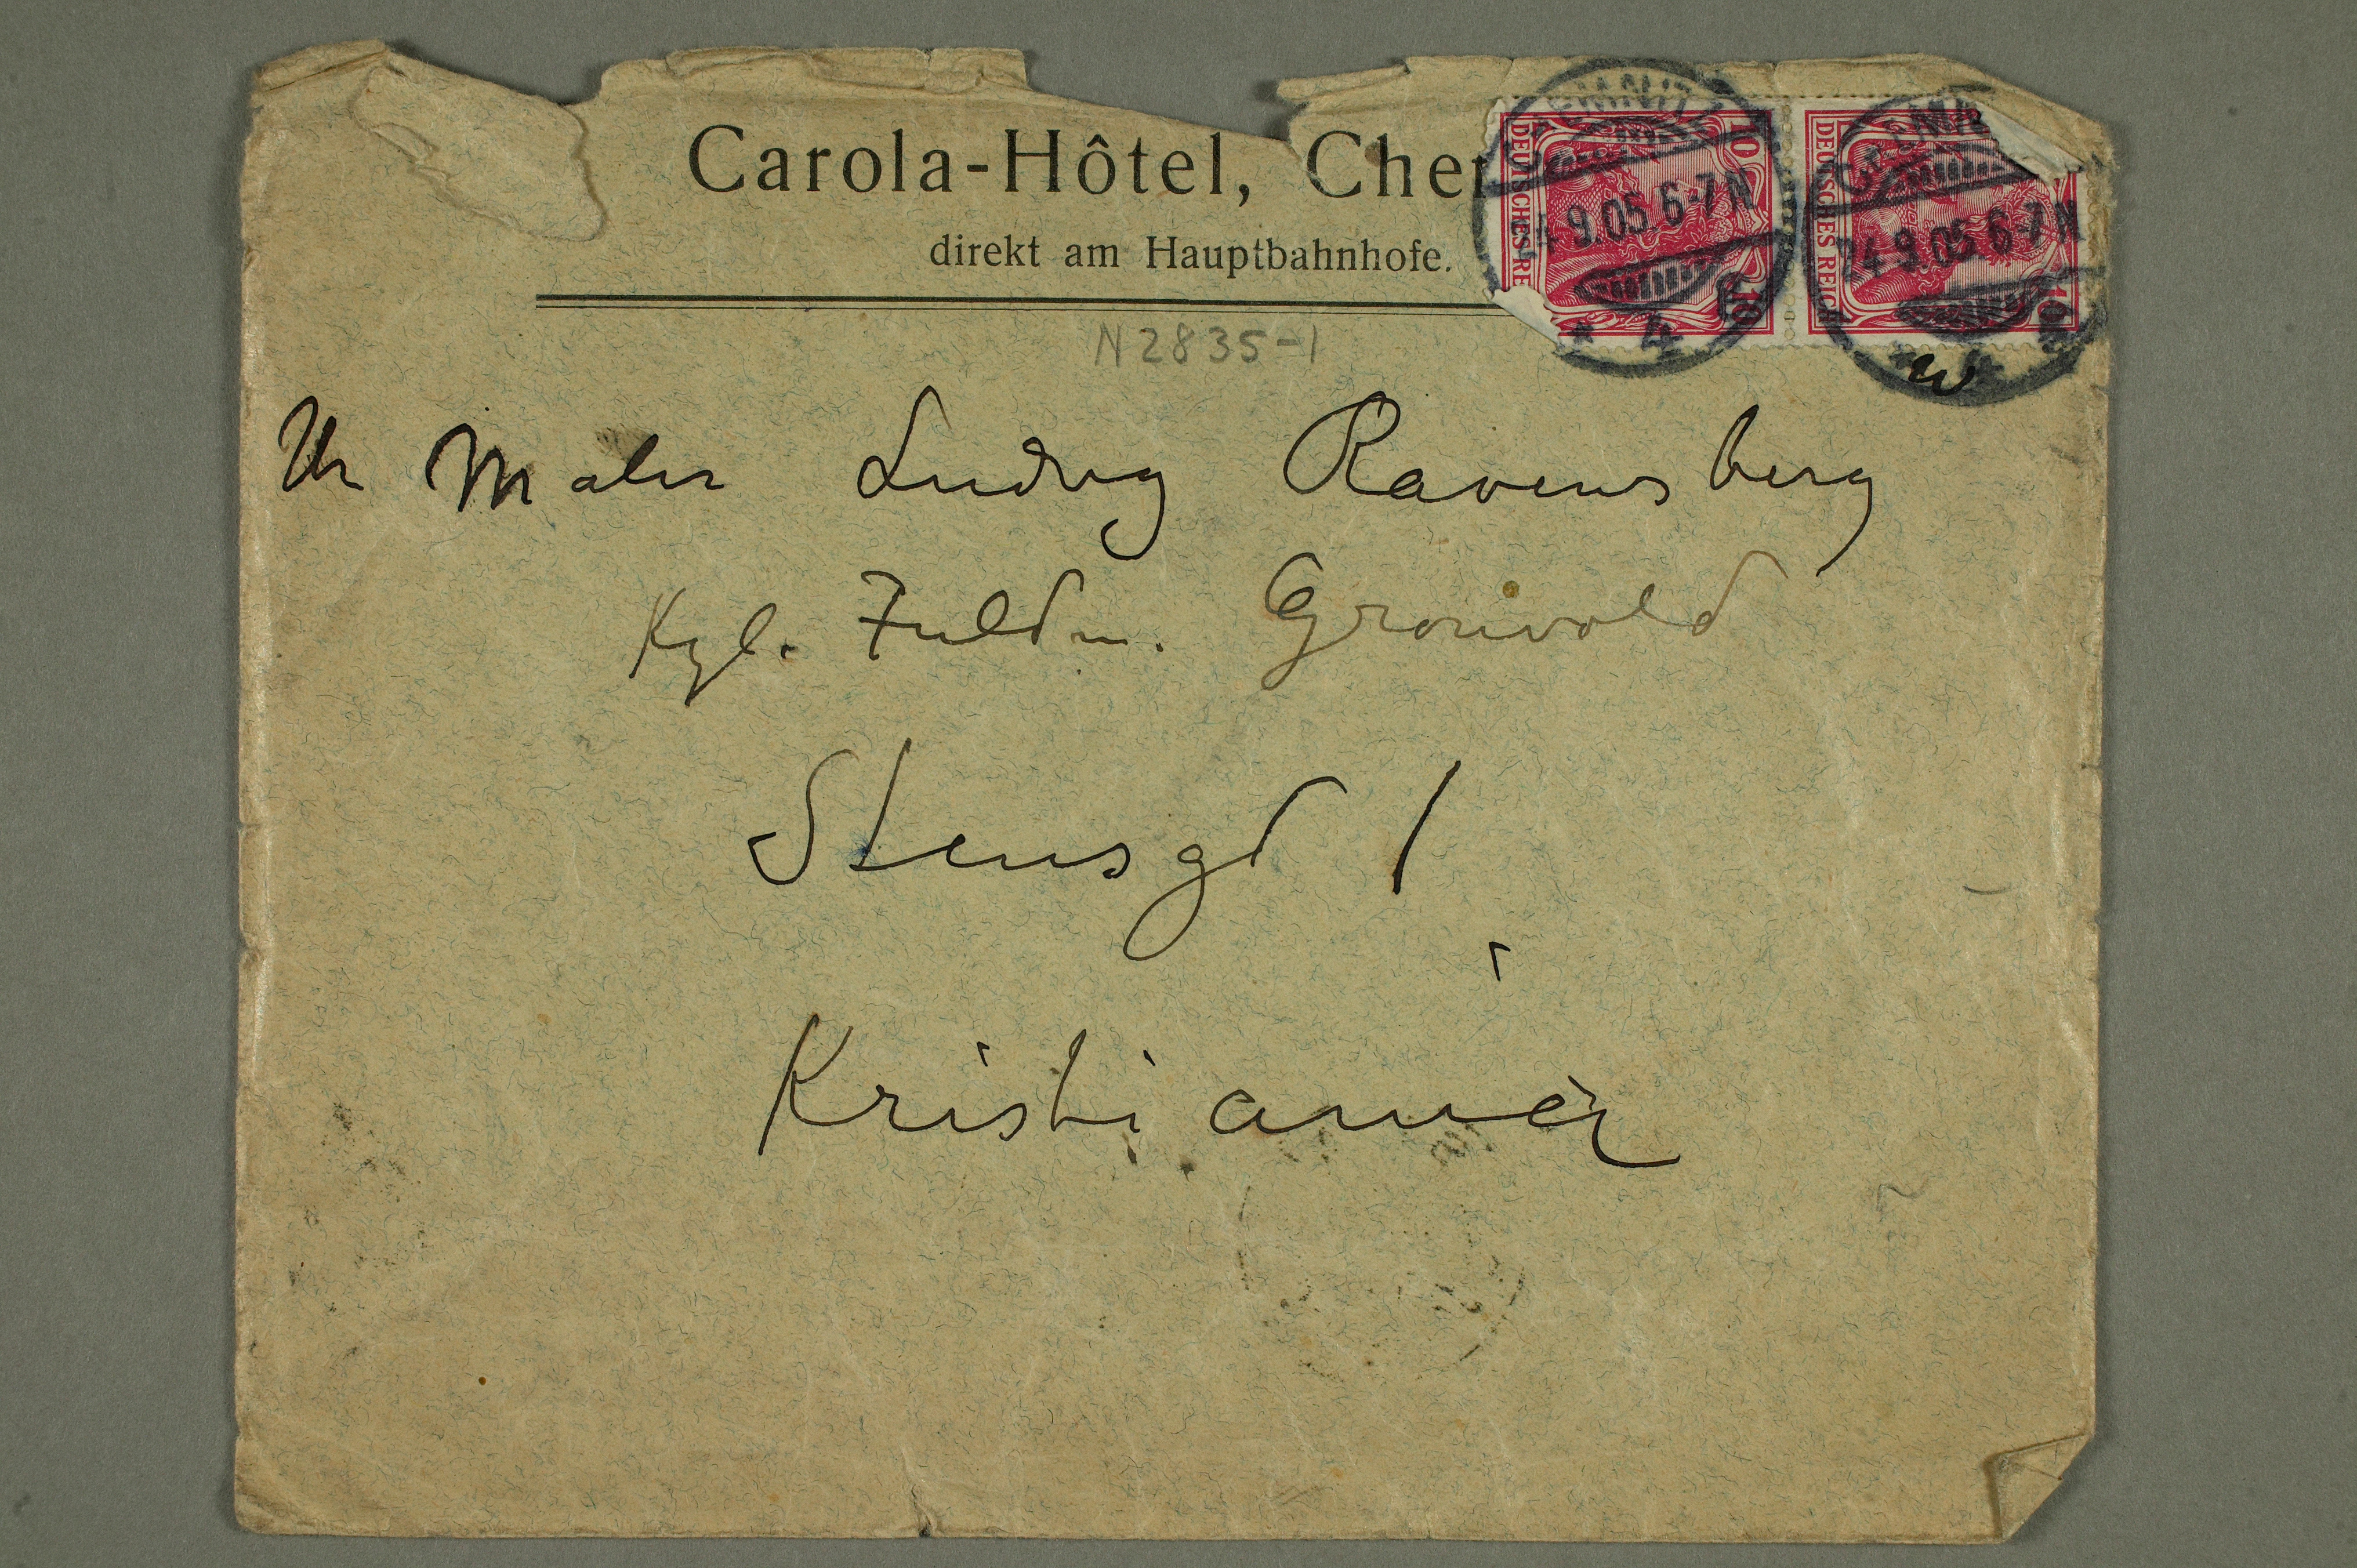 Carola-Hôtel, Che
direkt am Hauptbahnhofe.
DEUTSCHES RE
10
10
4 9.05.6-7N
4
DEUTSCHES REICH
10
24.9.05.6-7N
N2835-1
Hr Maler Ludvig Ravensberg
Kgl. Fuldm. Grönvold
Stensgd 1
Kristiania